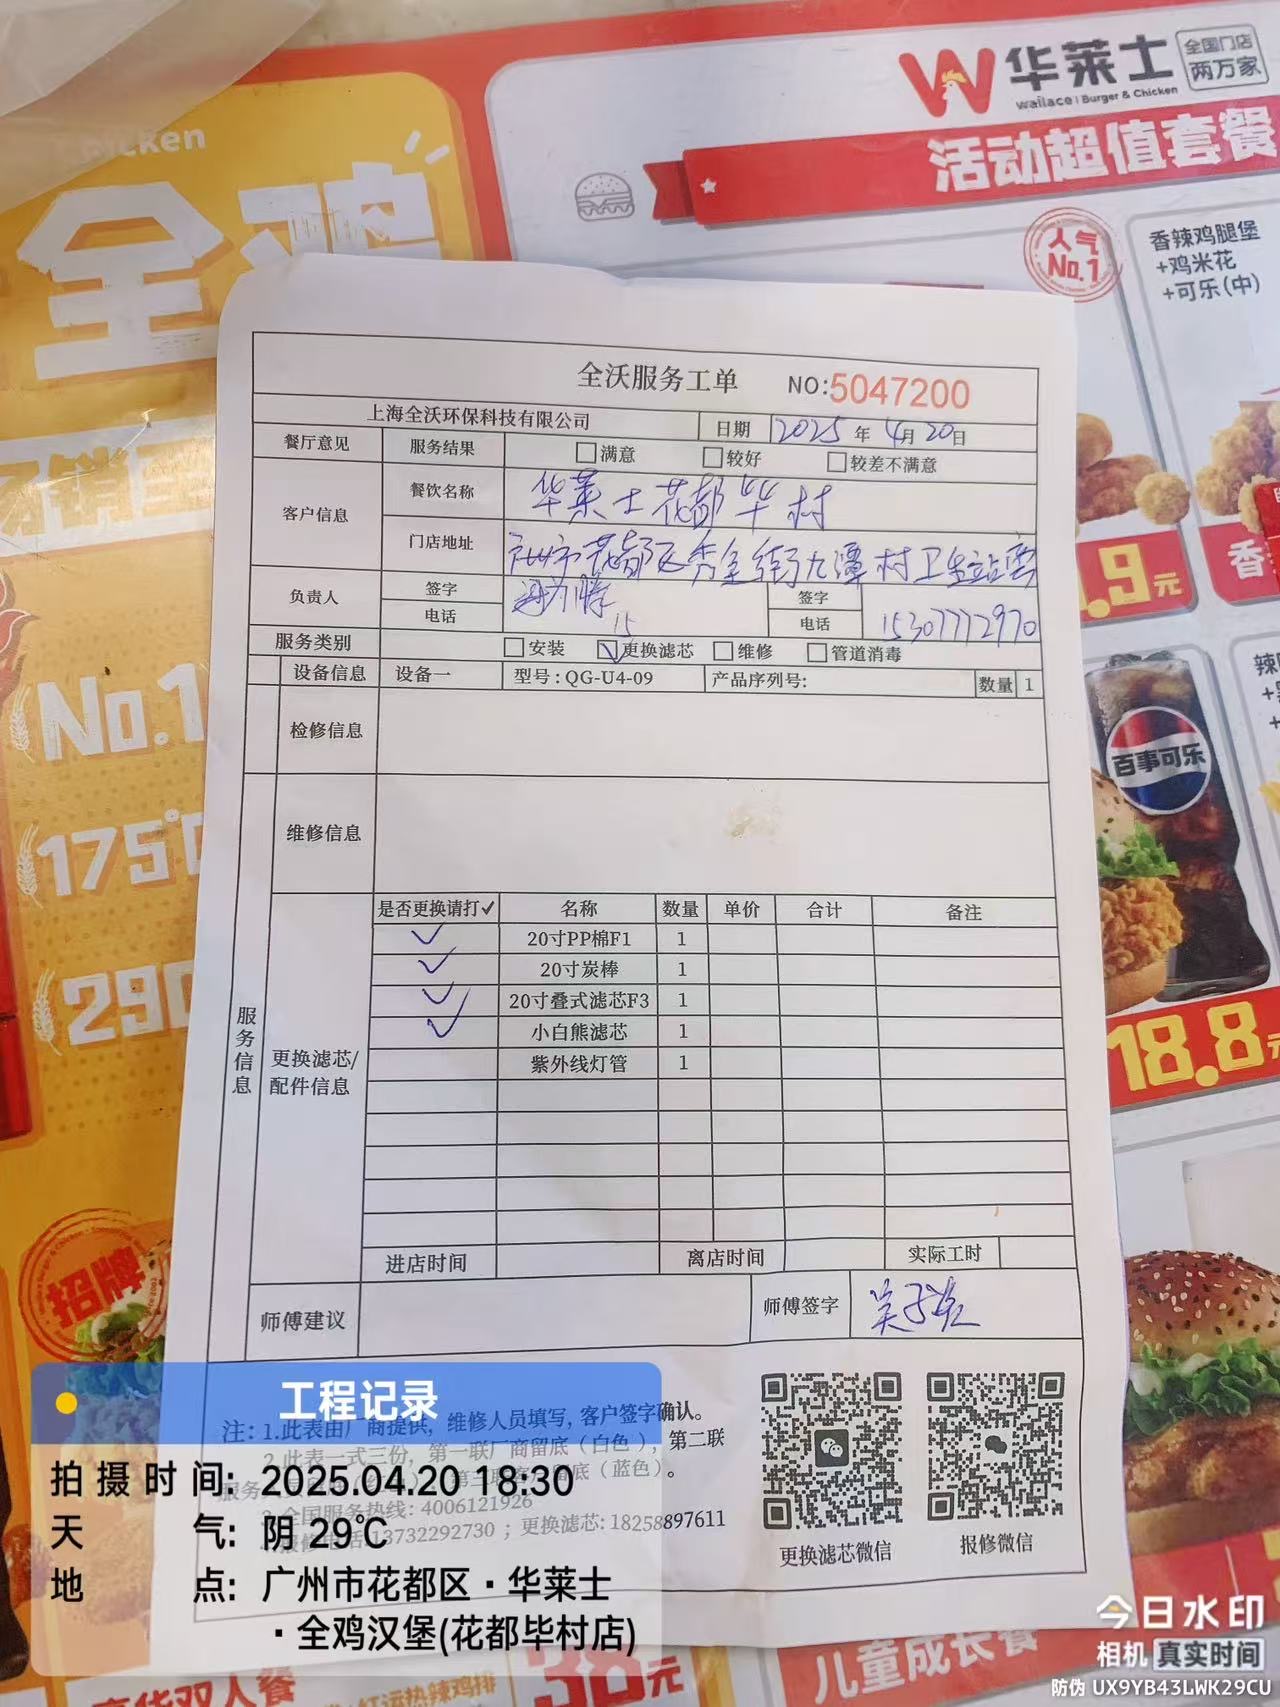 Chicken
全鸡
No.1
175℃
290
招牌
华莱士
全国门店
两万家
Wallace | Burger & Chicken
活动超值套餐
人气
No.1
香辣鸡腿堡
+鸡米花
+可乐(中)
.9元
香
百事可乐
18.8元
全沃服务工单 NO:5047200
上海全沃环保科技有限公司 日期 2025 年 4月 20日
餐厅意见 服务结果 满意 较好 较差不满意
客户信息 餐饮名称 华莱士花都毕村
门店地址 广州市花都区秀全街九潭村卫生站旁
负责人 签字 签字
电话 15 电话 15307772970
服务类别 安装 更换滤芯 维修 管道消毒
设备信息 设备一 型号:QG-U4-09 产品序列号: 数量 1
检修信息
维修信息
服务信息
更换滤芯/
配件信息
是否更换请打✓ 名称 数量 单价 合计 备注
✓ 20寸PP棉F1 1
✓ 20寸炭棒 1
✓ 20寸叠式滤芯F3 1
✓ 小白熊滤芯 1
紫外线灯管 1
进店时间 离店时间 实际工时
师傅建议 师傅签字
注:1.此表由厂商提供,维修人员填写,客户签字确认。
2.此表一式三份,第一联厂商留底(白色),第二联
服务 第三联客户留底(蓝色)。
3.全国服务热线:4006121926
报修电话:13732292730;更换滤芯:18258897611
更换滤芯微信 报修微信
工程记录
拍摄时间: 2025.04.20 18:30
天气: 阴 29℃
地点: 广州市花都区·华莱士
·全鸡汉堡(花都毕村店)
今日水印
相机 真实时间
防伪 UX9YB43LWK29CU
豪华双人餐
儿童成长餐